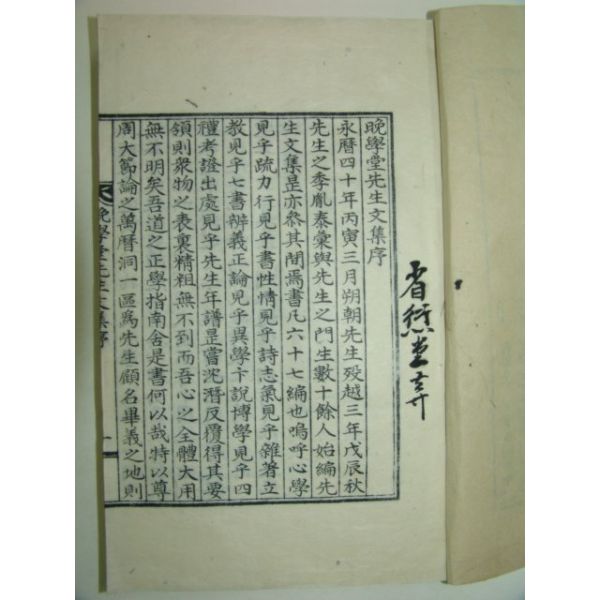 晚學堂先生文集序
永曆四十年丙寅三月朔朝先生歿越三年戊辰秋
先生之季胤泰彙與先生之門生數十餘人始編先
生文集是亦叅其間焉書凡六十七編也嗚呼心學
見乎疏力行見乎書性情見乎詩志氣見乎雜著立
教見乎七書辨義正論見乎異學卞說博學見乎四
禮考證出處見乎先生年譜是嘗沈潛反覆得其要
領則衆物之表裏精粗無不到而吾心之全體大用
無不明矣吾道之正學指南舍是書何以哉特以尊
周大節論之萬曆洞一區爲先生顧名畢義之地則
晚學堂先生文集序
一